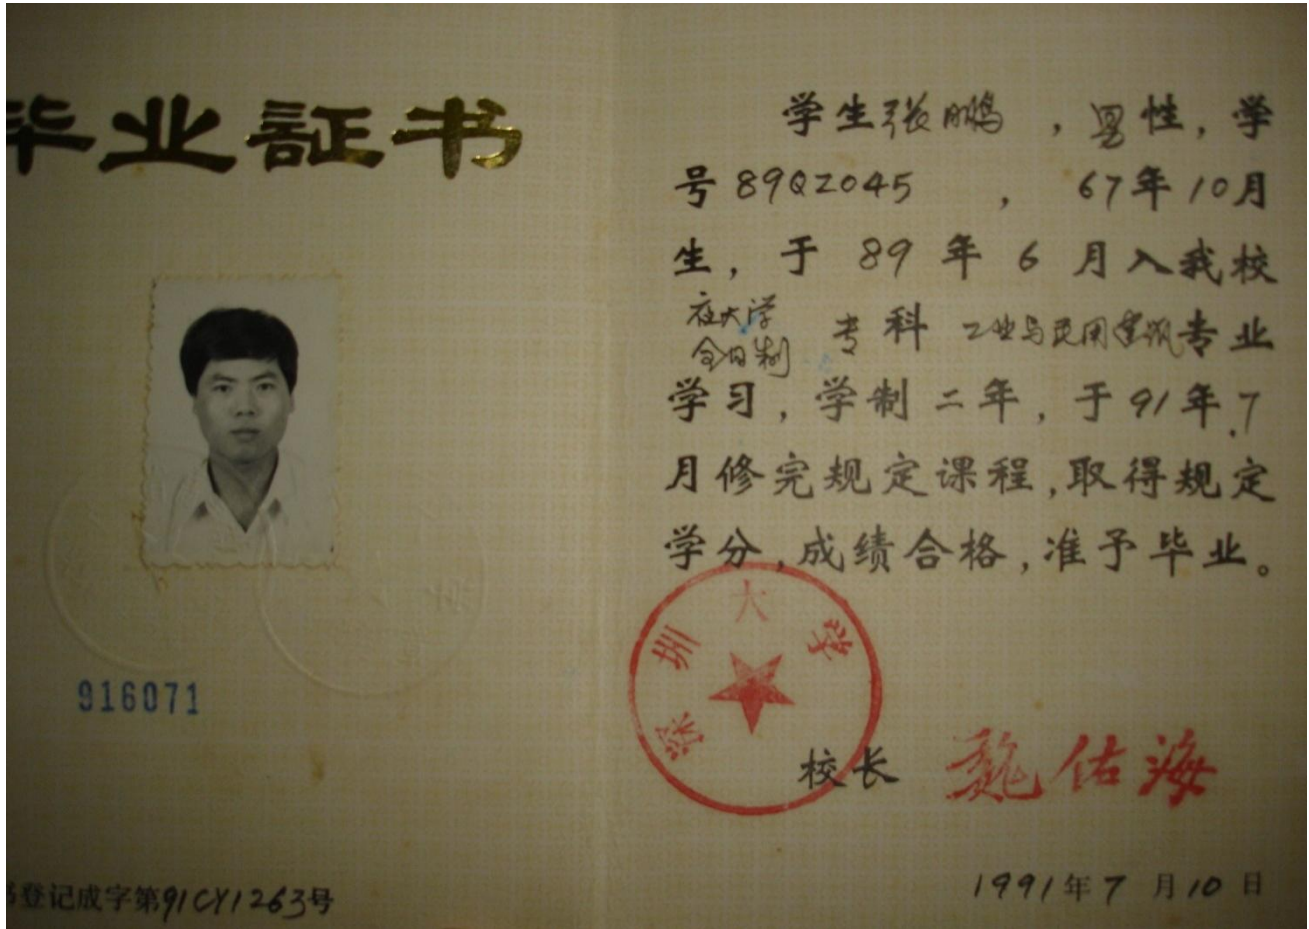 毕业証书
916071
登记成字第91CY1263号
学生张鹏,男性,学
号89QZ045,67年10月
生,于89年6月入我校
在大学
全日制 专科 工业与民用建筑专业
学习,学制二年,于91年7
月修完规定课程,取得规定
学分,成绩合格,准予毕业。
深圳大学
校长 魏佑海
1991年7月10日